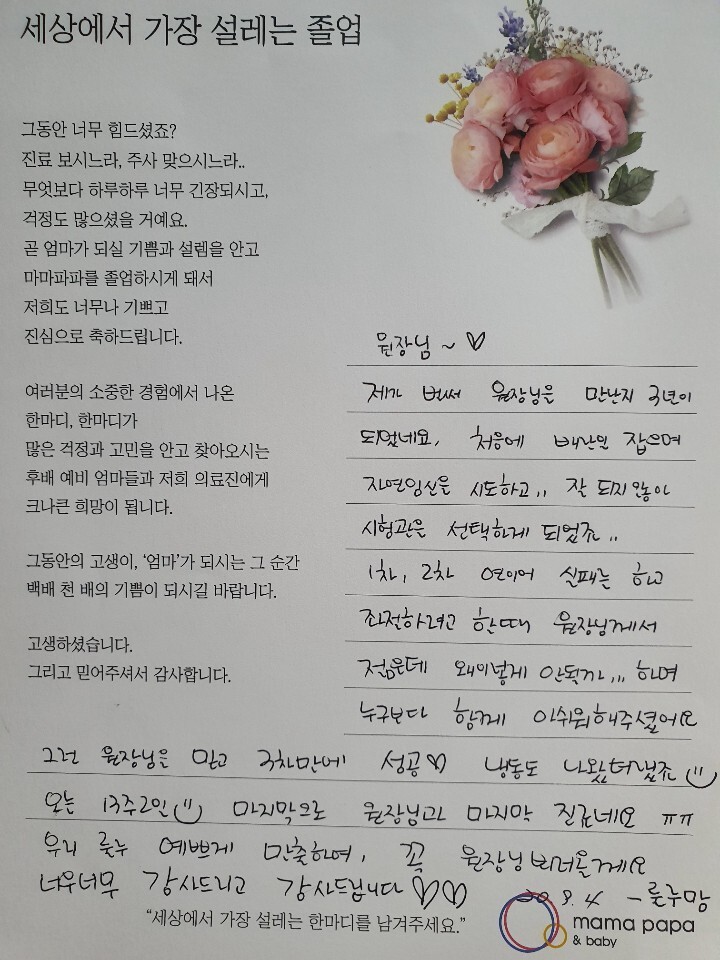 세상에서 가장 설레는 졸업
그동안 너무 힘드셨죠?
진료 보시느라, 주사 맞으시느라..
무엇보다 하루하루 너무 긴장되시고,
걱정도 많으셨을 거예요.
곧 엄마가 되실 기쁨과 설렘을 안고
마마파파를 졸업하시게 돼서
저희도 너무나 기쁘고
진심으로 축하드립니다.
여러분의 소중한 경험에서 나온
한마디, 한마디가
많은 걱정과 고민을 안고 찾아오시는
후배 예비 엄마들과 저희 의료진에게
크나큰 희망이 됩니다.
그동안의 고생이, '엄마'가 되시는 그 순간
백배 천 배의 기쁨이 되시길 바랍니다.
고생하셨습니다.
그리고 믿어주셔서 감사합니다.
원장님 ~ ♡
제가 벌써 원장님을 만난지 3년이
되었네요, 처음에 배난일 잡으며
자연임신을 시도하고,, 잘 되지 않아
시험관을 선택하게 되었죠..
1차, 2차 연이어 실패를 하고
좌절하려고 할때 원장님께서
젊은데 왜이렇게 안될까,,, 하며
누구보다 함께 아쉬워해주셨어요
그런 원장님을 믿고 3차만에 성공♡ 냉동도 나왔더랬죠
오늘 13주2일 마지막으로 원장님과 마지막 진료네요 ㅠㅠ
우리 룰누 예쁘게 만출하여, 꼭 원장님 뵈러올게요
너무너무 감사드리고 감사드립니다 ♡♡♡
20. 9. 4 - 룰누맘
"세상에서 가장 설레는 한마디를 남겨주세요."
mama papa
& baby